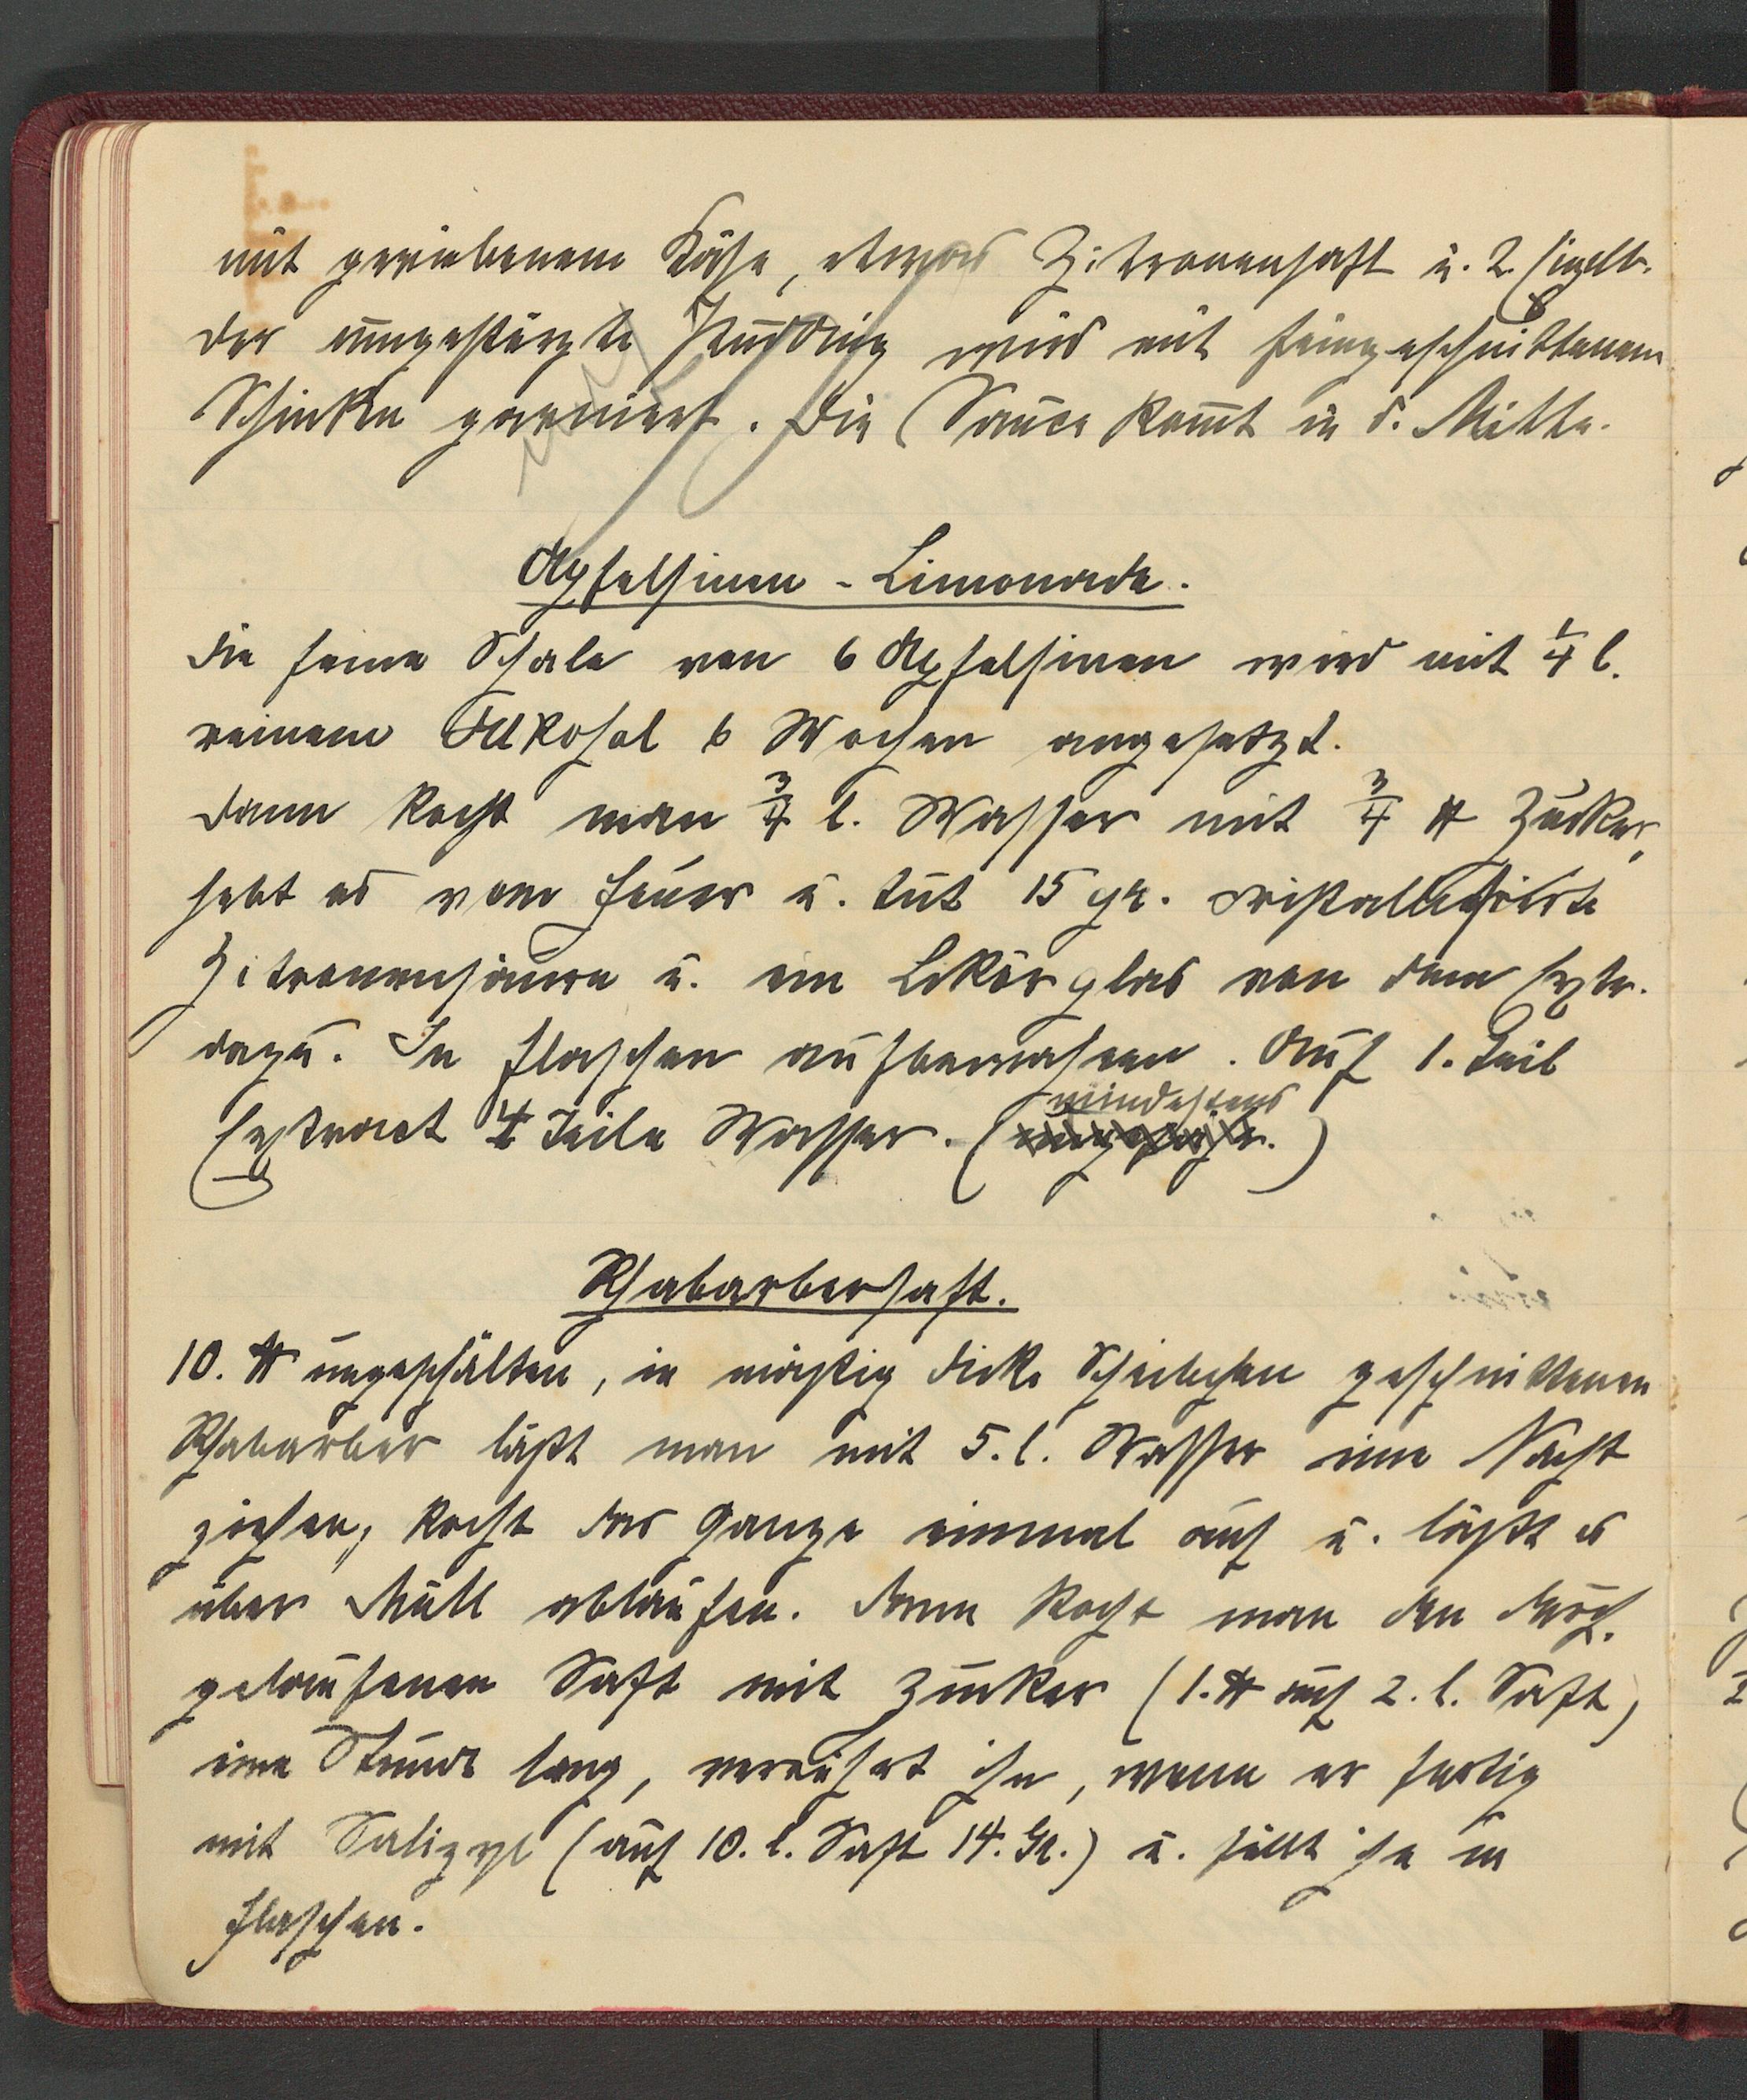 mit geriebenem Käse, etwas Zitronensaft u. 2. Eigelb.
Der umgestürzte Pudding wird mit feingeschnittenem
Schinken garniert. Die Sauce kom̄t in d. Mitte.
Apfelsinen-Limonade.
Die feine Schale von 6 Apfelsinen wird mit 1/4 l.
reinem Alkohol 6 Wochen angesetzt.
Dann kocht man 3/4 l. Wasser mit 3/4 ℔ Zucker,
hebt es vom Feuer u. tut 15 gr. cristallisierte
Zitronensäure u. ein Likörglas von dem Extr.
dazu. In Flaschen aufbewahren. Auf 1. Teil
mindestens
Extract 4 Teile Wasser. (ungefähr.)
Rhabarbersaft.
10. ℔ ungeschälten, in mäßig dicke Scheibchen geschnittenen
Rhabarber läßt man mit 5. l. Wasser eine Nacht
ziehen, kocht das Ganze einmal auf u. läßt es
über Mull ablaufen. Dann kocht man den durch-
gelaufenen Saft mit Zucker (1. ℔ auf 2. l. Saft)
eine Stunde lang, verrührt ihn, wenn er fertig
mit Salizyl (auf 10. l. Saft 14. Gr.) u. füllt ihn in
Flaschen.